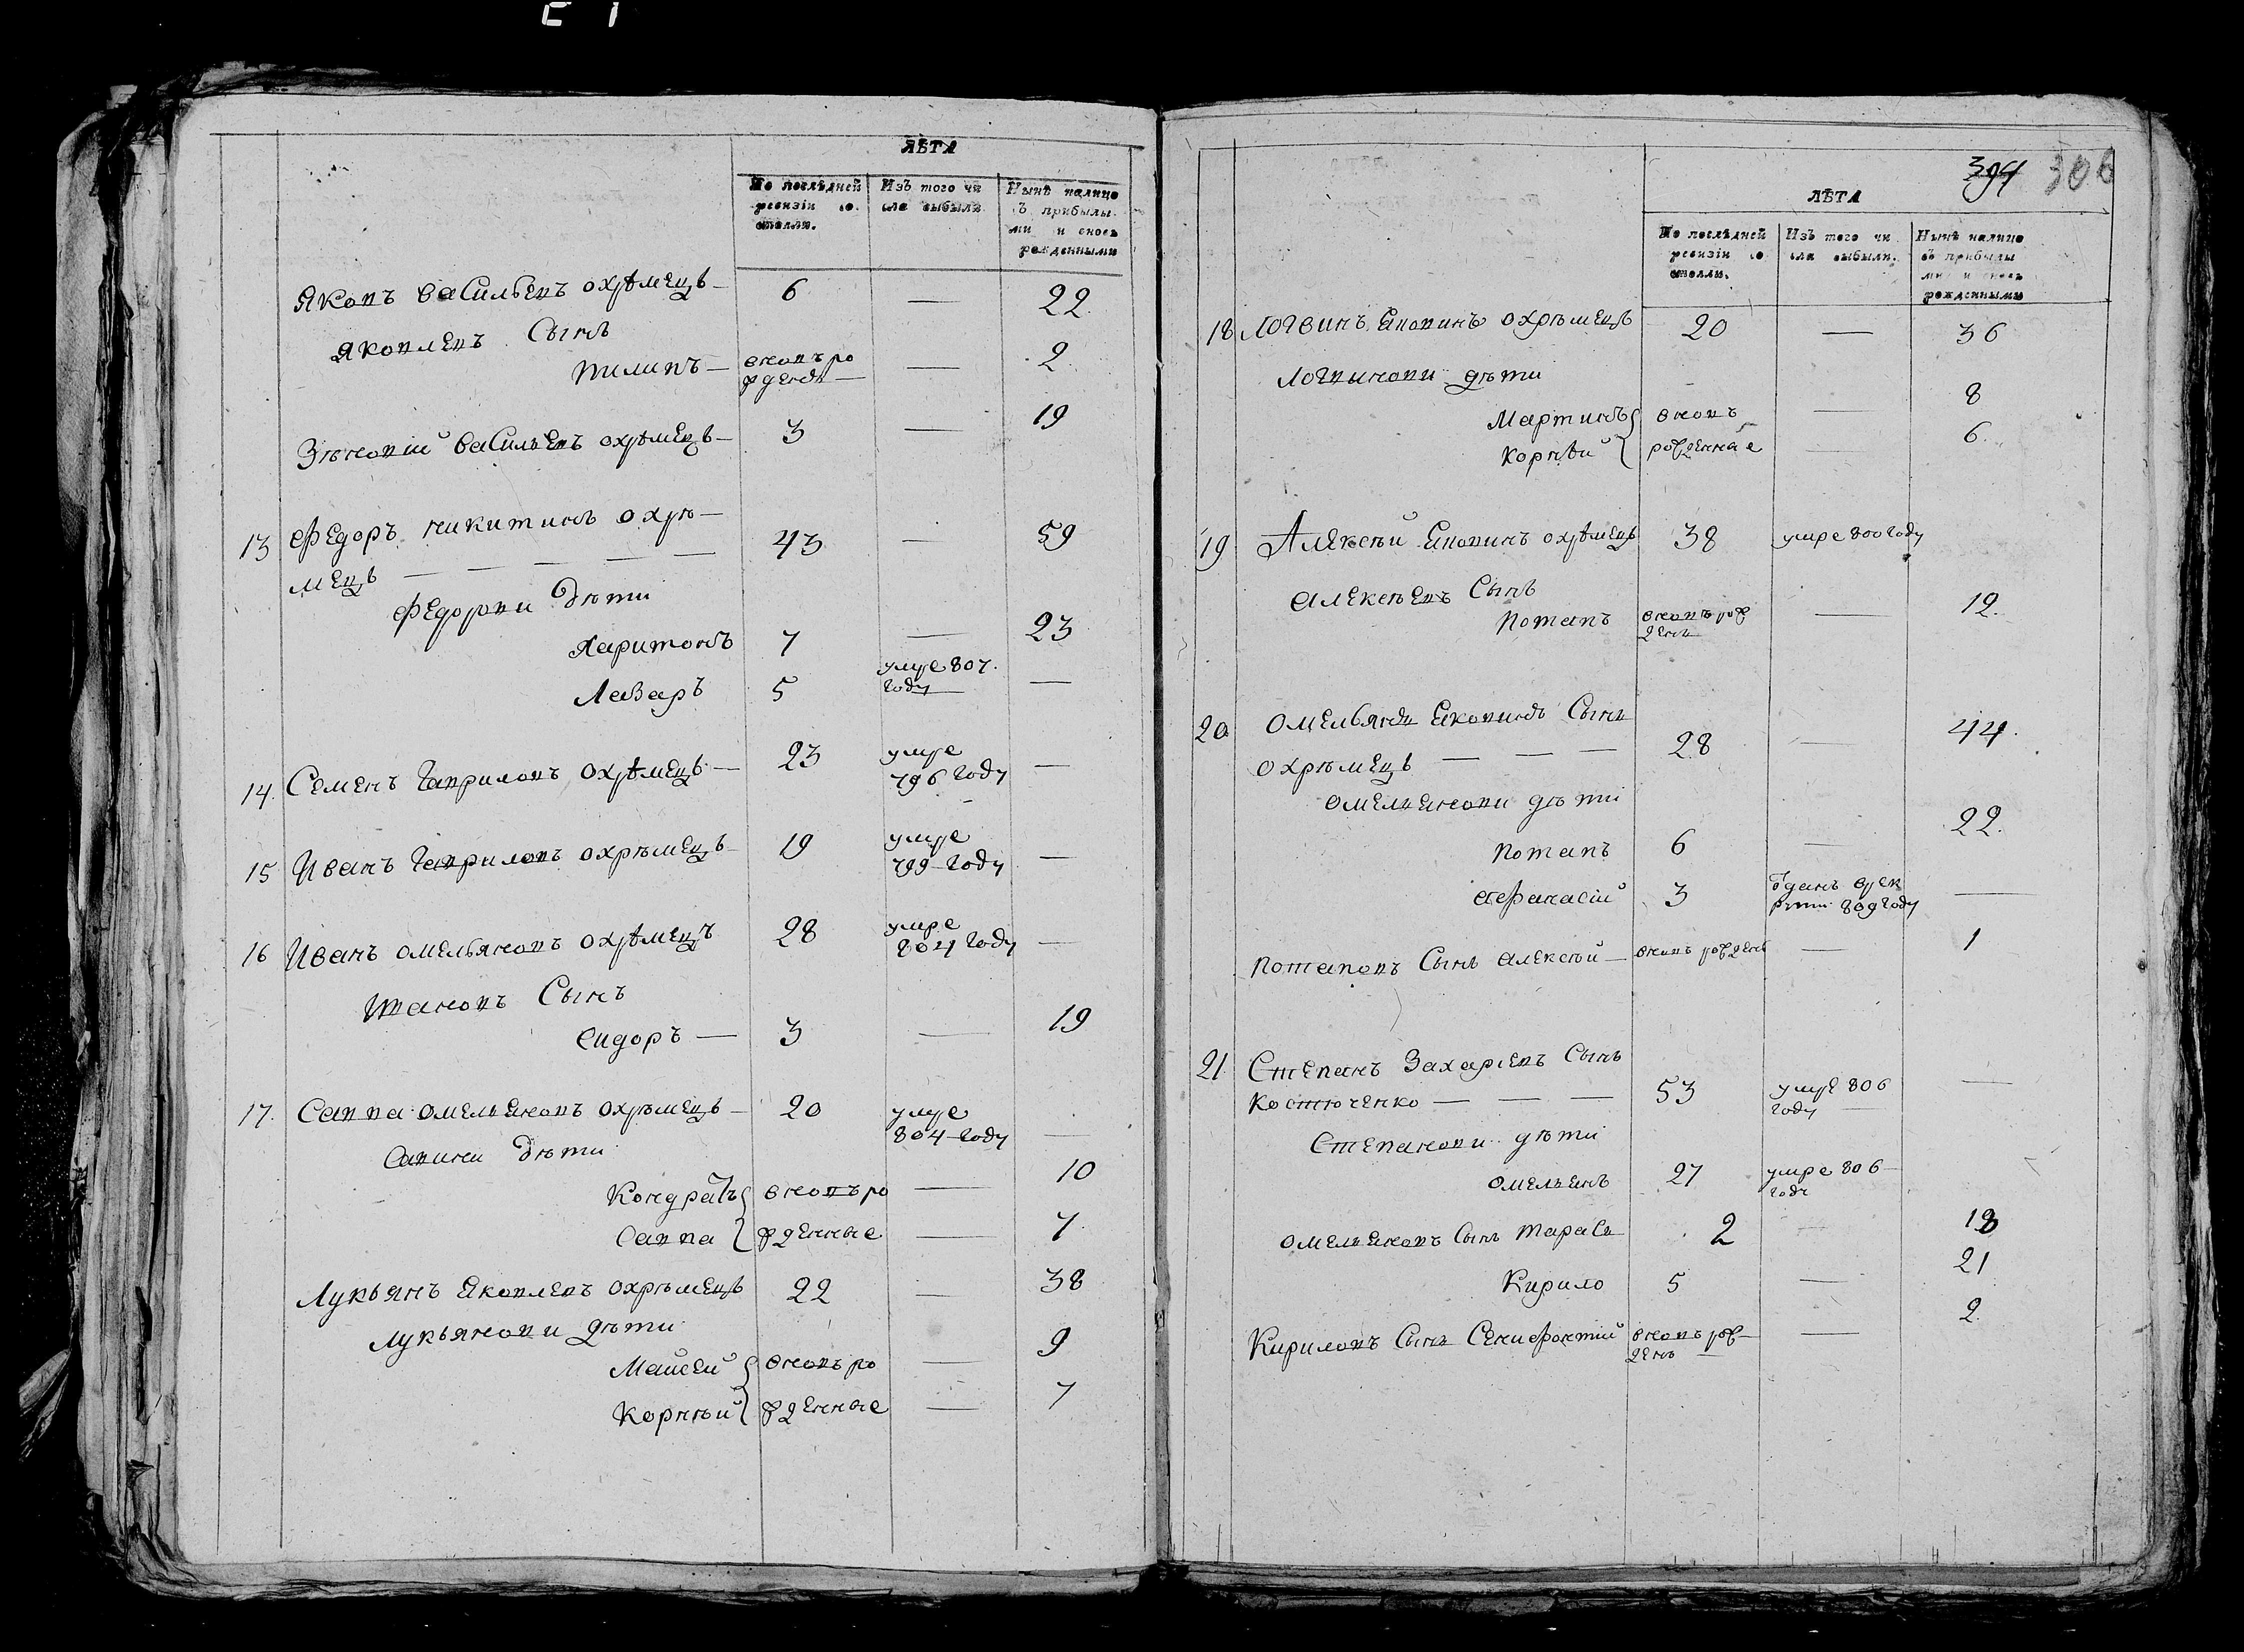 ЛѢТА
По послѣдней ревизіи состояли.
Изъ того числа выбыли
Нынѣ налицо съ прибылыми и вновь рожденными
Яковъ Васильевъ охрѣмецъ — 6 — 22.
Яковлевъ Сынъ
Филипъ — вновь рожденъ — 2.
Зѣновій Васильевъ охрѣмецъ — 3 — 19
13 Федоръ Никитинъ охрѣ—
мецъ — — — — 43 — 59
Федорови Дѣти
Харитонъ 7 — 23
Лазаръ 5 умре 807. году —
14. Семенъ Гавриловъ охрѣмецъ — 23 умре 796 году —
15 Иванъ Гавриловъ охрѣмецъ — 19 умре 799 году —
16 Иванъ омельяновъ охрѣмецъ 28 умре 804 году —
Ивановъ Сынъ
Сидоръ — 3 — 19
17. Савва омельяновъ охрѣмецъ — 20 умре 804 году —
Савини Дѣти
Кондратъ вновь ро — 10
Савва жденные — 7.
Лукьянъ Яковлевъ охрѣмецъ 22 — 38
Лукьянови дѣти
Мойсей вновь ро — 9
Корнѣй жденные — 7
394 306
ЛѢТА
По послѣдней ревизіи состояли.
Изъ того числа выбыли.
Нынѣ налицо съ прибылыми и вновь рожденными
18 Логвинъ охрѣмецъ 20 — 36
Логвинови дѣти
Мартинъ вновь — 8
Корнѣй рожденные — 6.
19 Алексѣй охрѣмецъ 38 умре 800 году
Алексѣевъ Сынъ
Потапъ вновь рожденъ — 12.
20 Омельянъ Сынъ
охрѣмецъ — — — 28 — 44.
Омельянови дѣти
Потапъ 6 — 22.
Афанасій 3 отданъ в рекрути 809 году —
Потаповъ Сынъ Алексѣй — вновь рожденъ — 1
21 Степанъ Захаріевъ Сынъ
Костюченко — — — 53 умре 806 году —
Степанови дѣти
Омельянъ 27 умре 806 году
Омельяновъ Сынъ Тарасъ 2 — 18
Кирило 5 — 21
Кириловъ Сынъ Сенифонтій вновь рожденъ — 2.